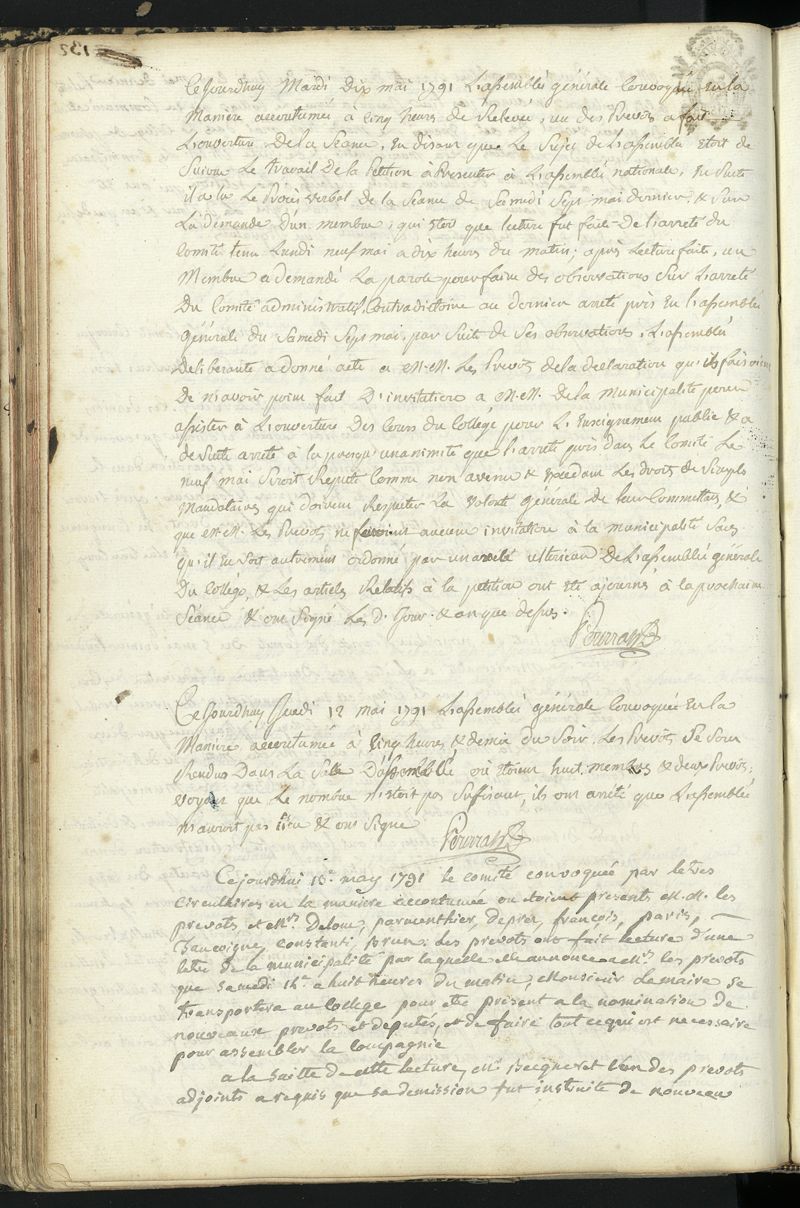 132
Cejourdhuy Mardi dix mai 1791 L'assemblée générale Convoquée en la
Maniere accoutumée à Cinq heures de Relevée, un des Prevots a fait
L'ouverture de la Seance, en disant que Le Sujet de L'assemblée etoit de
Suivre Le travail de la Petition à Presenter à L'assemblé nationale, En Suite
il a lu Le Procès verbal de la Seance du Samedi Sept mai dernier, & Sur
La demande d'un membre, qui etoit que lecture fut faite de l'arreté du
Comité tenu Lundi neuf mai a dix heures du matin; après Lecture faite, un
Membre a demandé La parole pour faire des observations Sur L'arreté
Du Comité administratif, Contradictoire au dernier arreté pris en L'assemblée
générale du Samedi Sept mai, par Suit de Ses observations, L'assemblée
deliberante a donné acte a M.M. Les Prevots de la declaration qu'ils faisoient
De n'avoir point fait D'invitation a M.M. de la Municipalité pour
assister à L'ouverture des Cours du College pour L'Enseignement public & a
de Suite arreté à la presqu'unanimité que L'arreté pris dans Le Comité Le
neuf mai Seroit Reputé Comme non avenu & Excedant Les droits de Simples
Mandataires qui doivent Respecter La volonté générale de leur Commettans, &
que M.M. Les Prevots ne feroient aucune invitation à la municipalité Sans
qu'il En Soit autrement ordonné par un arreté ulterieur De L'assemblée générale
Du College, & Les articles Relatifs à la petition ont été ajournés à la prochaine
Séance & ont Signé Les d. Jour & an que dessus.
Ce Jourdhuy Jeudi 12 mai 1791 L'assemblée générale Convoquée en la
Maniere accoutumée à Cinq heures & demie du Soir, Les Prevots Se Sont
Rendus Dans La Salle D'assemblée où etoient huit membres & deux Prevots;
voyant que Le nombre n'etoit pas Suffisant, ils ont arreté que L'assemblée
n'auroit pas lieu & ont Signé
Cejourdhui 13e may 1791 le comité convoquée par letres
circulaires en la manière accoutumée ou etoient presents M.M. les
prevots, et Mrs Deloue, parmenthier, Deprez, françois, paris,
Chauvigne, Constanti, Brun: Les prevots ont fait lecture d'une
letre de la municipalité par laquelle elle annonce a Mrs les prevots
que samedi 14e a huit heures du matin, Monsieur Lemaire se
transportera au College pour etre present a la nomination de
nouveaux prevots et deputés, et de faire tout ce qui est necessaire
pour assembler la Compagnie
a la Suitte de cette lecture, Mr Becqueret l'un des prevots
adjoints a requis que sa demission fut instruite de nouveau